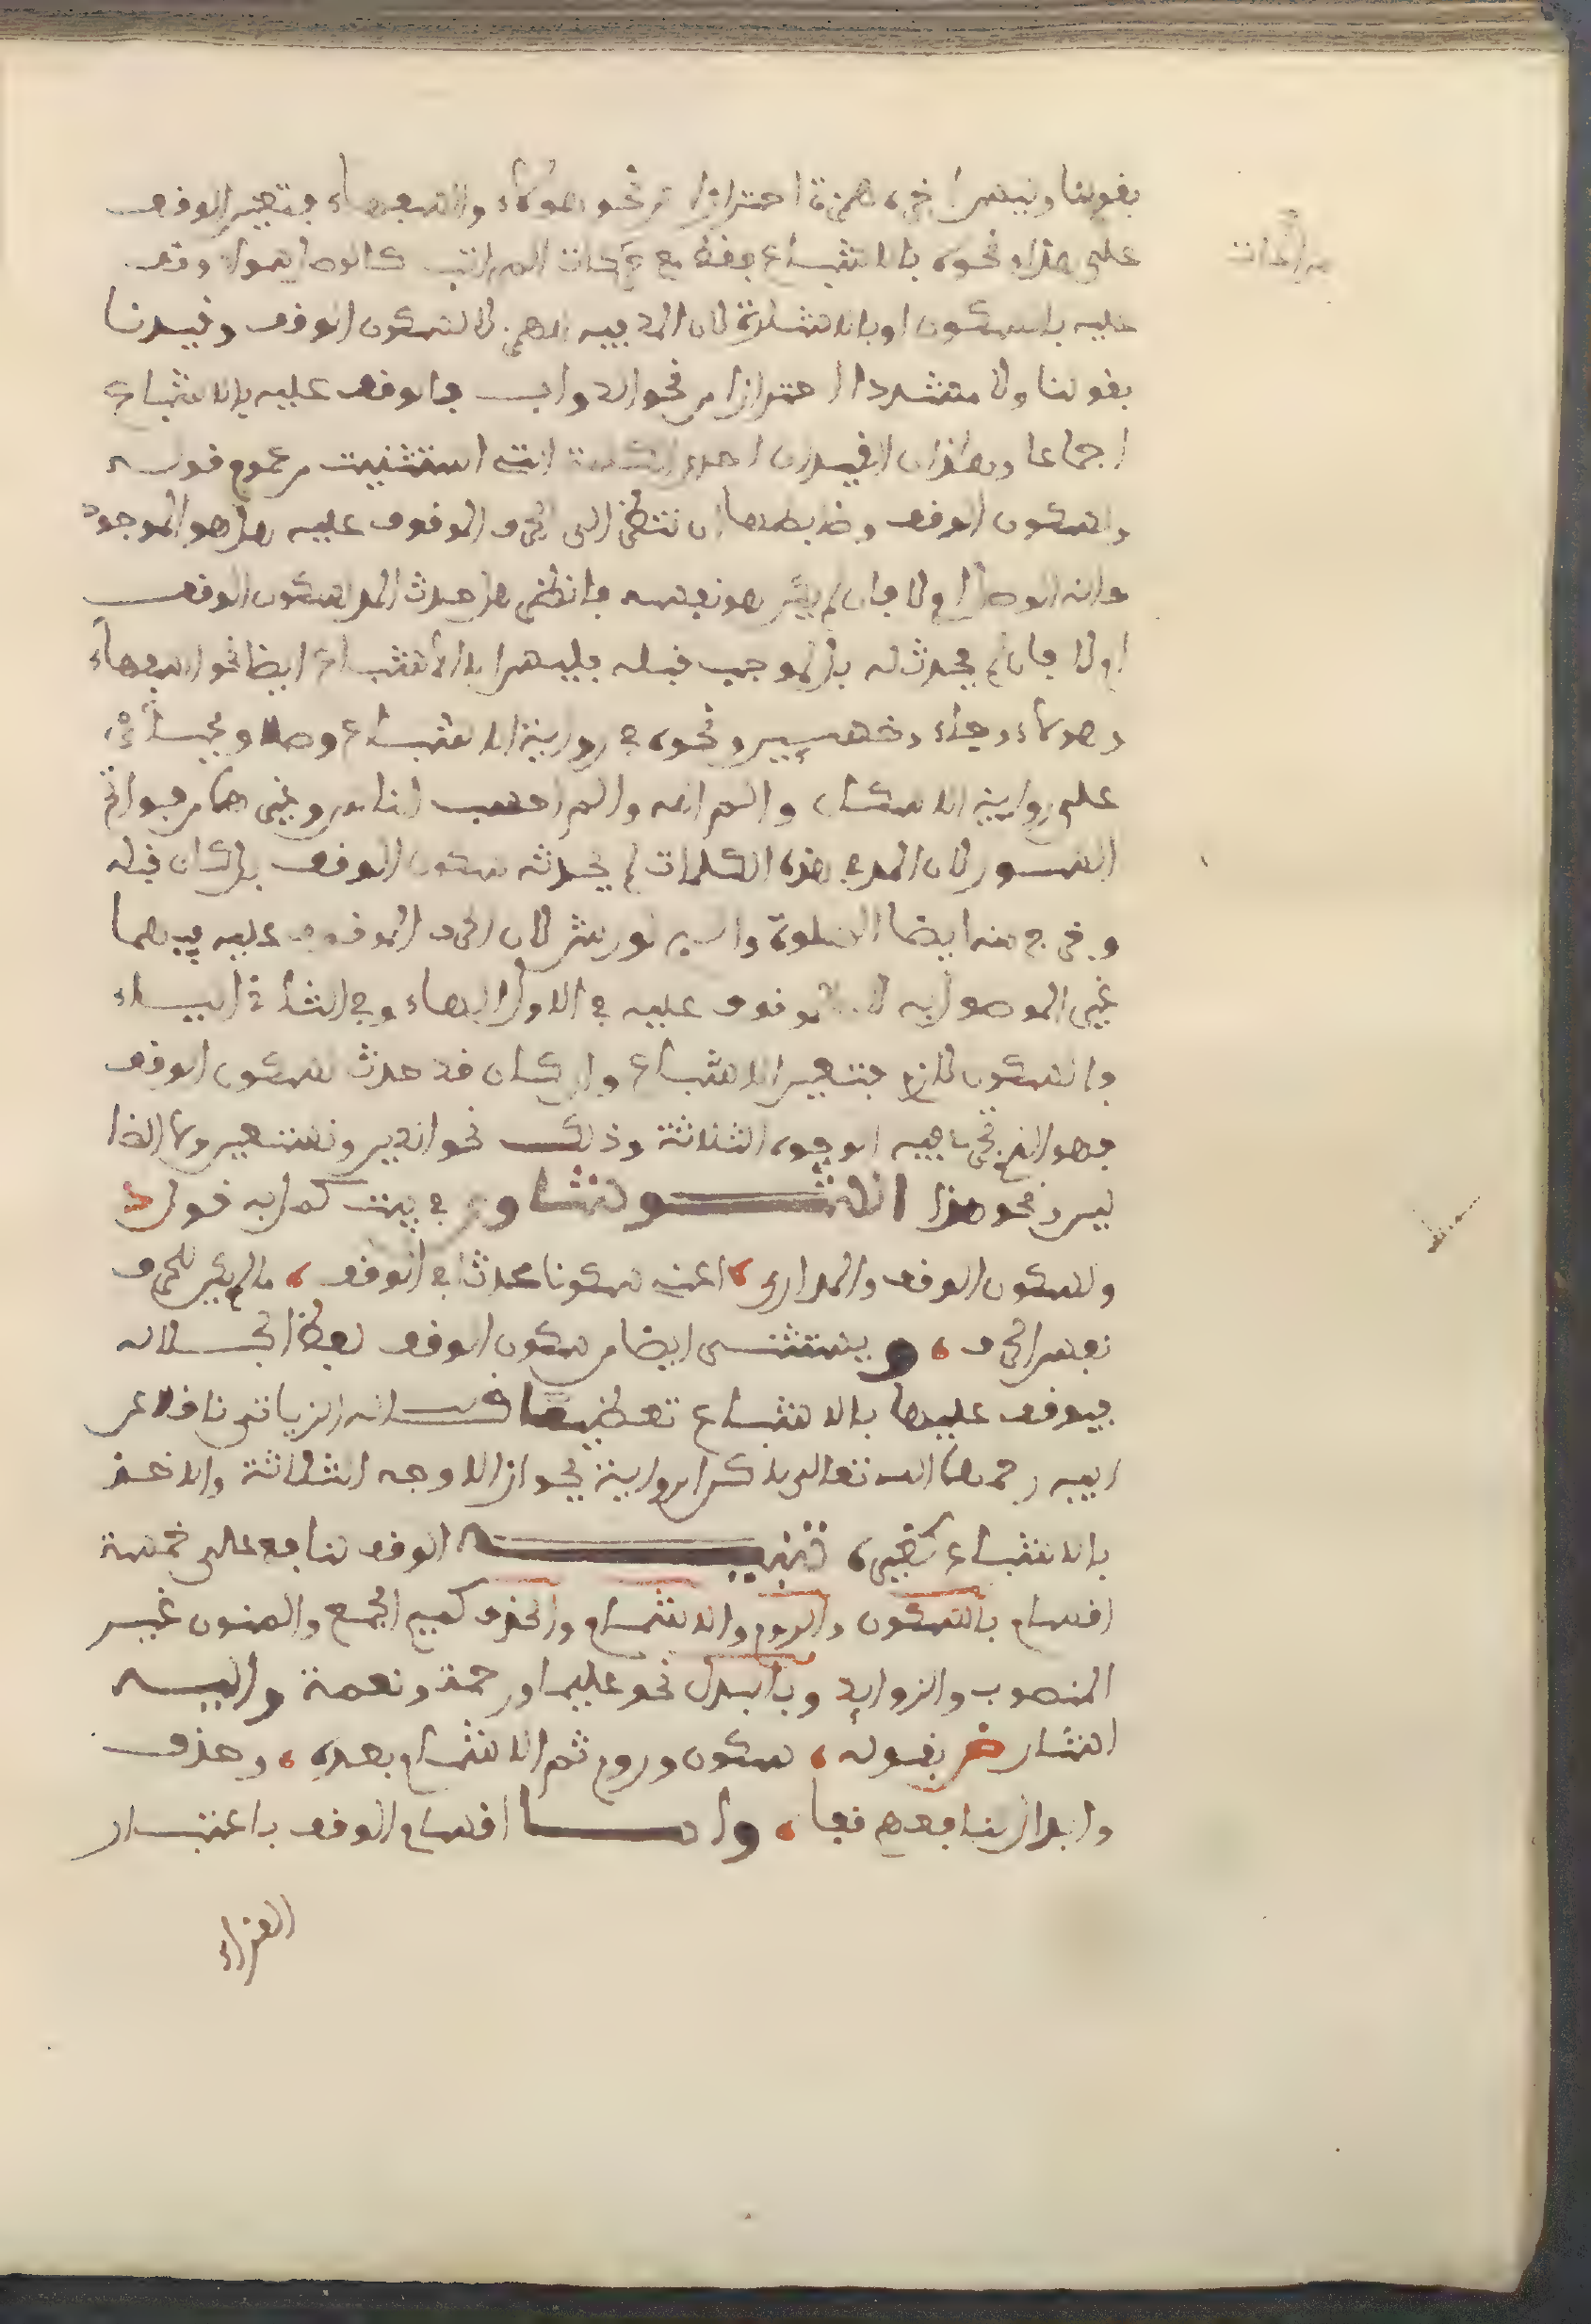 بقولنا وليس اخره همزة احترازا من نحو هؤلاء والسفهاء فتعين الوقف
على هذا ونحوه بالاشباع فقط مع مراعات المراتب كالوصل سواء وقف
عليه بالسكون او بالاشارة لان المد فيه للهمز لا لسكون الوقف وقيدنا
بقولنا ولا مشددا احترازا من نحو الدواب فالوقف عليه بالاشباع
اجماعا وهذان القيدان احد التي استثنيت من عموم قوله
ولسكون الوقف وضابطها ان تنظر الى الحرف الموقوف عليه هل هو الموجود
حالة الوصل ام لا فان لم يكن هو نفسه فانظر هل حدث المد لسكون الوقف
اولا فان لم يحدث له بل الموجب قبله فليس الا الاشباع ايضا نحو السفهاء
وهؤلاء وجاء ونحوه في رواية الاشباع وصلا ومحياي
على رواية الاسكان والم الله والم احسب الناس وغيرها من فواتح
السور لان المد في هذه الكلمات لم يحدثه سكون الوقف بل كان قبله
وخرج منه ايضا الصلوة والي لورش لان الحرف الموقوف عليه فيهما
غير الموصول به لان الموقوف عليه في الاول الهاء وفي الثاني الياء
والسكون لازم فتعين الاشباع وان كان قد حدث لسكون الوقف
فهو الذي تجري فيه الوجوه الثلاثة وذلك نحو الدين ونستعين ولا الضا
لين ونحو هذا في بيت كمل به قول
ولسكون الوقف والمد ارى، اعني سكونا محدثا في الوقف، ما لم يكن للحرف
نفس الحرف، ويستثنى ايضا من سكون الوقف لفظ الجلاله
فيوقف عليها بالاشباع تعظيما قاله الزياتي ناقلا عن
ابيه رحمهما الله تعالى بل اكثر الرواية بجواز الاوجه الثلاثة والاخذ
بالاشباع كغيره، تنبيه الوقف لنافع على خمسة
اقسام بالسكون والروم والاشمام والحذف كميم الجمع والمنون غير
المنصوب والزوايد وبالبدل نحو عليما ورحمة ونعمة واليه
اشار بقوله، سكون وروم ثم الاشمام بعده، وحذف
وابدال لنافعهم قفا، واما اقسام الوقف باعتبار
القراء
مراعات